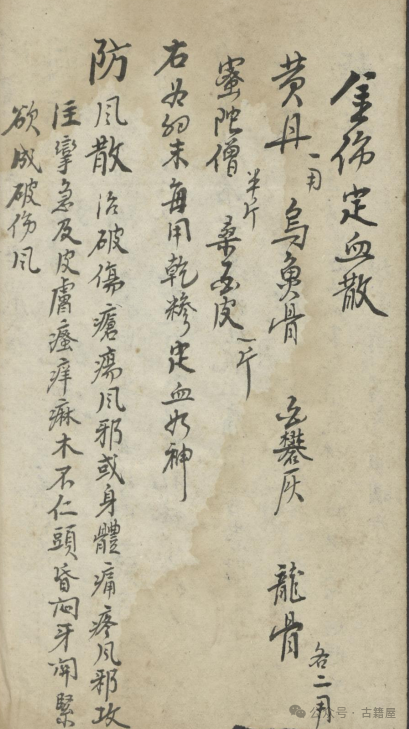 金伤定血散
黄丹一两 烏魚骨 白礬灰 龍骨各二两
蜜陀僧半斤 桑白皮一斤
右为细末每用乾糝定血如神
防风散 治破傷瘡瘍风邪或身體痛疼风邪攻
注孪急及皮膚瘙痒麻木不仁頭昏闷牙関緊
欲成破伤风
公众号·古籍屋